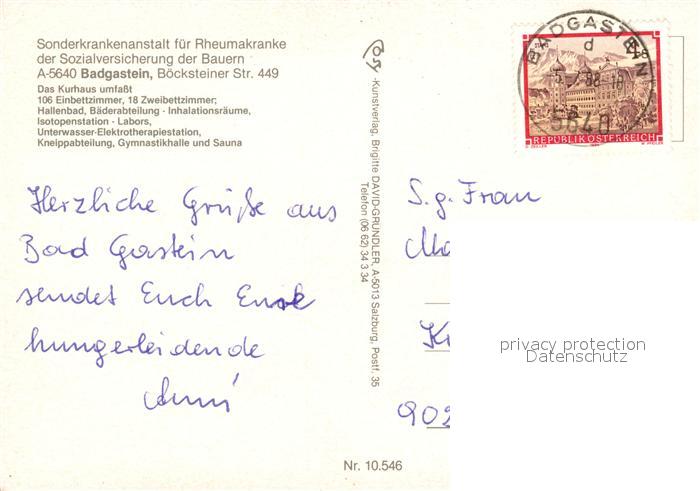 Sonderkrankenanstalt für Rheumakranke
der Sozialversicherung der Bauern
A-5640 Badgastein, Böcksteiner Str. 449
Das Kurhaus umfaßt
106 Einbettzimmer, 18 Zweibettzimmer;
Hallenbad, Bäderabteilung - Inhalationsräume,
Isotopenstation - Labors,
Unterwasser-Elektrotherapiestation,
Kneippabteilung, Gymnastikhalle und Sauna
Herzliche Grüße aus
Bad Gastein
sendet Euch Eure
hungerleidende
-Kunstverlag, Brigitte DAVID-GRÜNDLER, A-5013 Salzburg, Postf. 35
Telefon (06 62) 34 3 34
Nr. 10.546
BADGASTEIN
d
5640
REPUBLIK ÖSTERREICH
S.g. Frau
902
privacy protection
Datenschutz